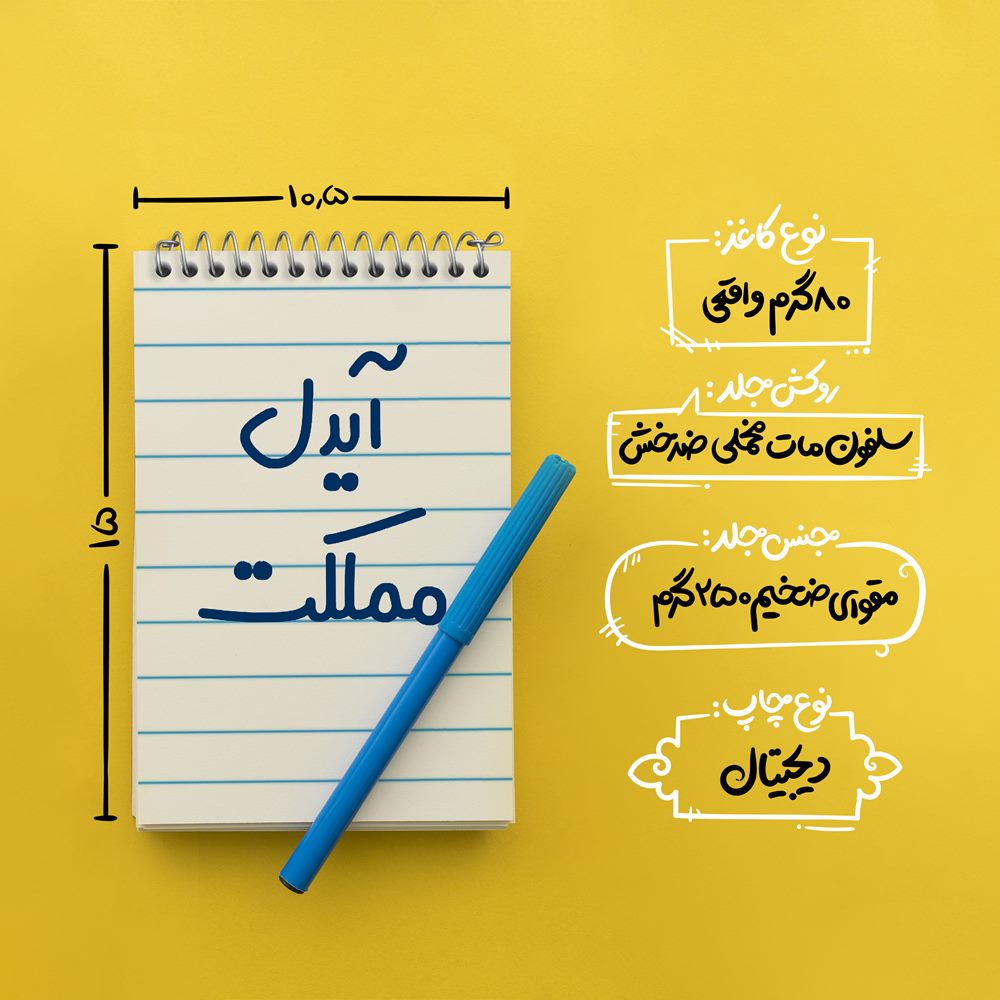 ۱۰٫۵
۱۵
آیدل
مملکت
نوع کاغذ:
۸۰گرم واقعی
روکش جلد:
سلفون مات مخملی ضدخش
جنس جلد:
مقوای ضخیم ۲۵۰گرم
نوع چاپ:
دیجیتال